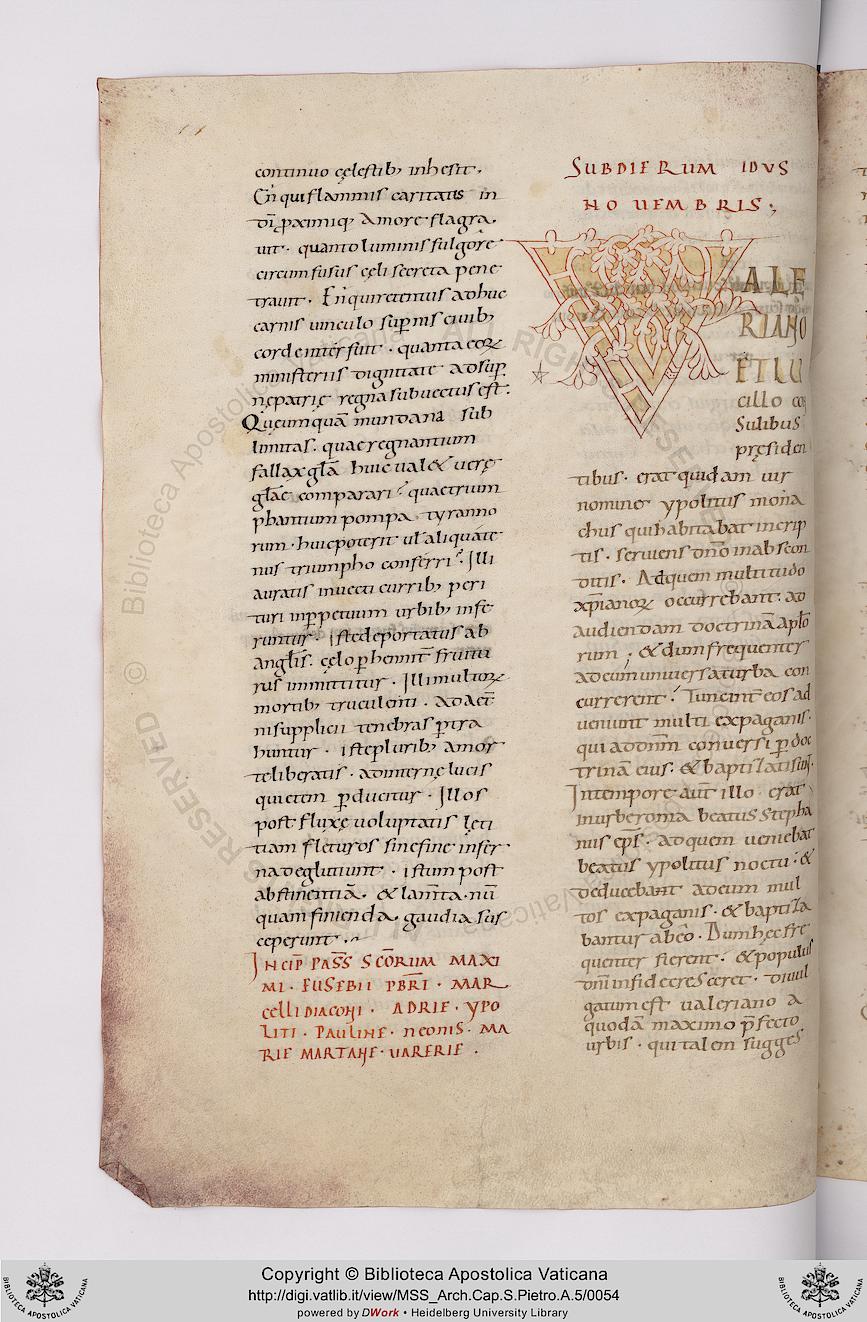 continuo cęlestib; inhesit.
En qui flammis caritatis in
di proximiq; amore flagra
uit. quanto luminis fulgore
circumfusus cęli secreta pene
trauit. En qui retentus adhuc
carnis uinculo supernis ciuib;
corde interfuit. quanta eorum
ministeriis dignitate ad sup
nę patrię regna subuectus est.
Quęcumquā mundana sub
limitas. quae regnantium
fallax glā huic ual& uerę
glāe comparari? quae trium
phantium pompa tyranno
rum. huic poterit ul aliquate
nus triumpho conferri? Illi
auratis inuecti currib; peri
turi in ppetuum urbib; infe
runtur. iste deportatus ab
anglis. cęlo phennit fruitu
rus immittitur. Illi multorum
mortib; truculenti. ad aet
ni supplicii tenebras ptra
huntur. iste plurib; amor
te liberatis. ad internę lucis
quietem pducitur. Illos
post fluxę uoluptatis lęti
tiam fleturos sine fine infer
na deglutiunt. istum post
abstinentiā. & lamta. nū
quam finienda gaudia sus
ceperunt.
INCIP PASS SCORUM MAXI
MI. EUSEBII PBRI. MAR
CELLI DIACONI. ADRIE. YPO
LITI. PAULINE. NEONIS. MA
RIE MARTANE. UARERIE.
SUB DIE RUM IDUS
NOUEMBRIS;
VALE
RIANO
ET LU
cillo co
Sulibus
pręsiden
tibus. erat quidam uir
nomine ypolitus mona
chus qui habitabat in crip
tis. seruiens dno in abscon
ditis. Ad quem multitudo
xpianorum occurrebant. ad
audiendam doctrinā aplo
rum; & dum frequenter
ad eum uniuersa turba con
currerent. Tunc int eos ad
ueniunt multi ex paganis.
qui ad dnm conuersi p doc
trinā eius. & baptizati sunt.
In tempore aut illo erat
in urbe roma beatus stepha
nus eps. ad quem ueniebat
beatus ypolitus noctu. &
deducebant ad eum mul
tos ex paganis. & baptiza
bantur ab eo. Dum hęc fre
quenter fierent. & populus
dni in fide cresceret. diuul
gatum est ualeriano a
quodā maximo pfecto
urbis. qui talem sugges
Copyright © Biblioteca Apostolica Vaticana
http://digi.vatlib.it/view/MSS_Arch.Cap.S.Pietro.A.5/0054
powered by DWork • Heidelberg University Library